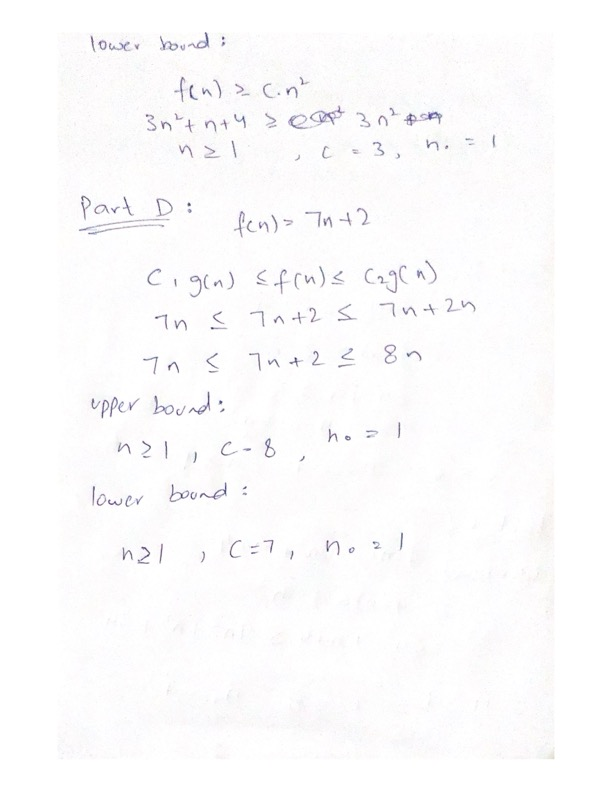 lower bound :
f(n) ≥ C.n²
3n² + n + 4 ≥ 3n²
n ≥ 1 , C = 3, n. = 1
Part D :
f(n) = 7n + 2
C₁ g(n) ≤ f(n) ≤ C₂g(n)
7n ≤ 7n + 2 ≤ 7n + 2n
7n ≤ 7n + 2 ≤ 8n
upper bound :
n ≥ 1 , C - 8 , n₀ = 1
lower bound :
n ≥ 1 , C = 7 , n₀ = 1